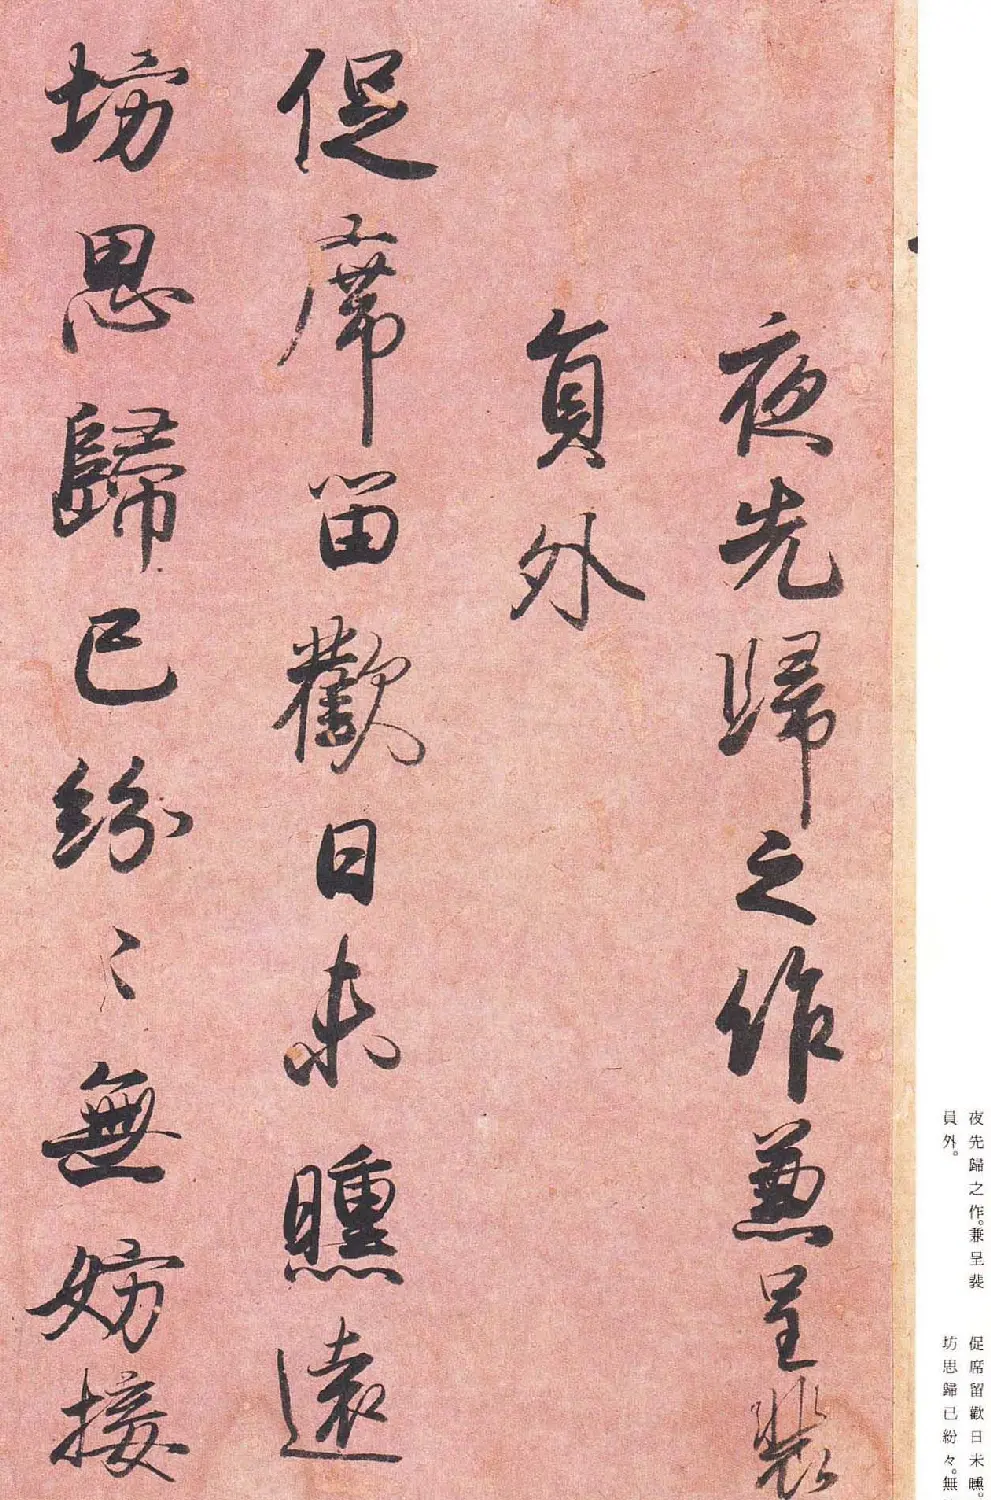 夜先歸之作兼呈裴
員外
促席留歡日未曛遠
坊思歸已紛々無妨接
夜先歸之作。兼呈裴
員外。
促席留歡日未曛。
坊思歸已紛々。無